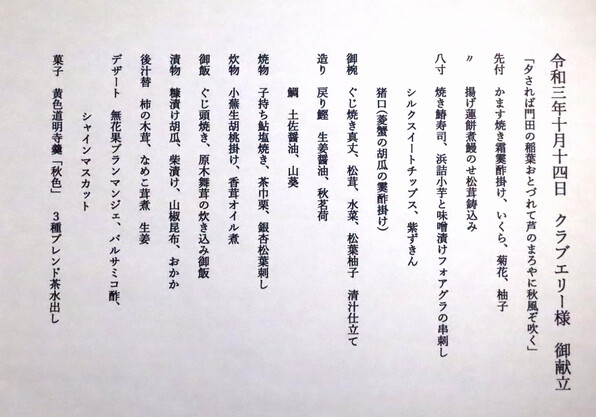 令和三年十月十四日　クラブエリー様　御献立
「夕されば門田の稲葉おとづれて芦のまろやに秋風ぞ吹く」
先付　かます焼き霜霙酢掛け、いくら、菊花、柚子
〃　揚げ蓮餅煮鰻のせ松茸鋳込み
八寸　焼き鯖寿司、浜詰小芋と味噌漬けフォアグラの串刺し
シルクスイートチップス、紫ずきん
猪口（菱蟹の胡瓜の霙酢掛け）
御椀　ぐじ焼き真丈、松茸、水菜、松葉柚子　清汁仕立て
造り　戻り鰹　生姜醤油、秋茗荷
鯛　土佐醤油、山葵
焼物　子持ち鮎塩焼き、茶巾栗、銀杏松葉刺し
炊物　小蕪生胡桃掛け、香茸オイル煮
御飯　ぐじ頭焼き、原木舞茸の炊き込み御飯
漬物　糠漬け胡瓜、柴漬け、山椒昆布、おかか
後汁替　柿の木茸、なめこ茸煮　生姜
デザート　無花果ブランマンジェ、バルサミコ酢、
シャインマスカット
菓子　黄色道明寺羹「秋色」　3種ブレンド茶水出し